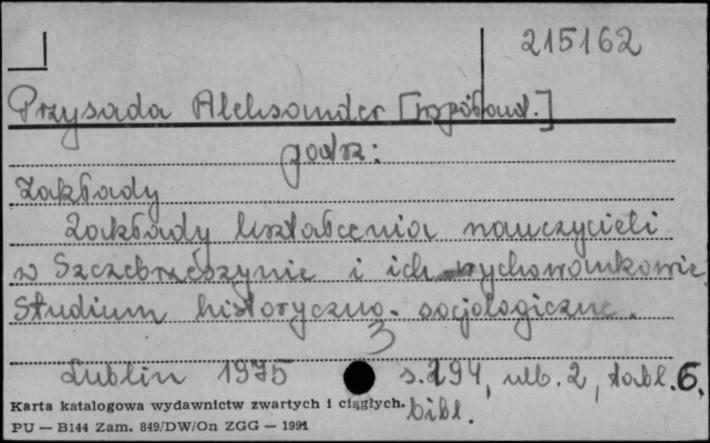 215162
Przysada Aleksander [współaut.]
patrz:
Zakłady
Zakłady kształcenia nauczycieli
w Szczebrzeszynie i ich wychowankowie.
Studium historyczno-socjologiczne.
Lublin 1975 s. 294, nlb. 2, tabl. 6,
bibl.
Karta katalogowa wydawnictw zwartych i ciągłych.
PU — B144 Zam. 849/DW/On ZGG — 1991